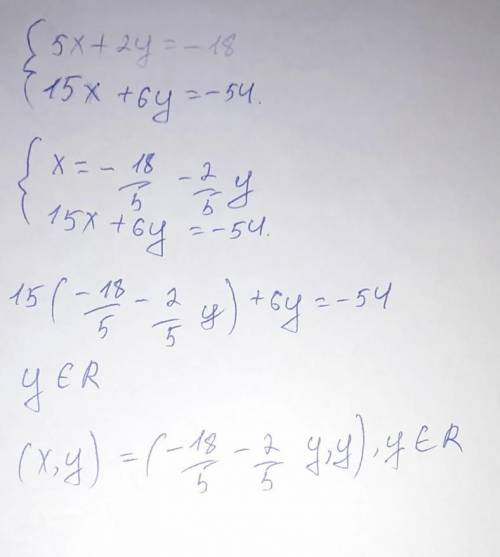 { 5x + 2y = -18
15x + 6y = -54.
{ x = - 18/5 - 2/5 y
15x + 6y = -54.
15 ( -18/5 - 2/5 y ) + 6y = -54
y ∈ R
(x, y) = ( -18/5 - 2/5 y, y ), y ∈ R